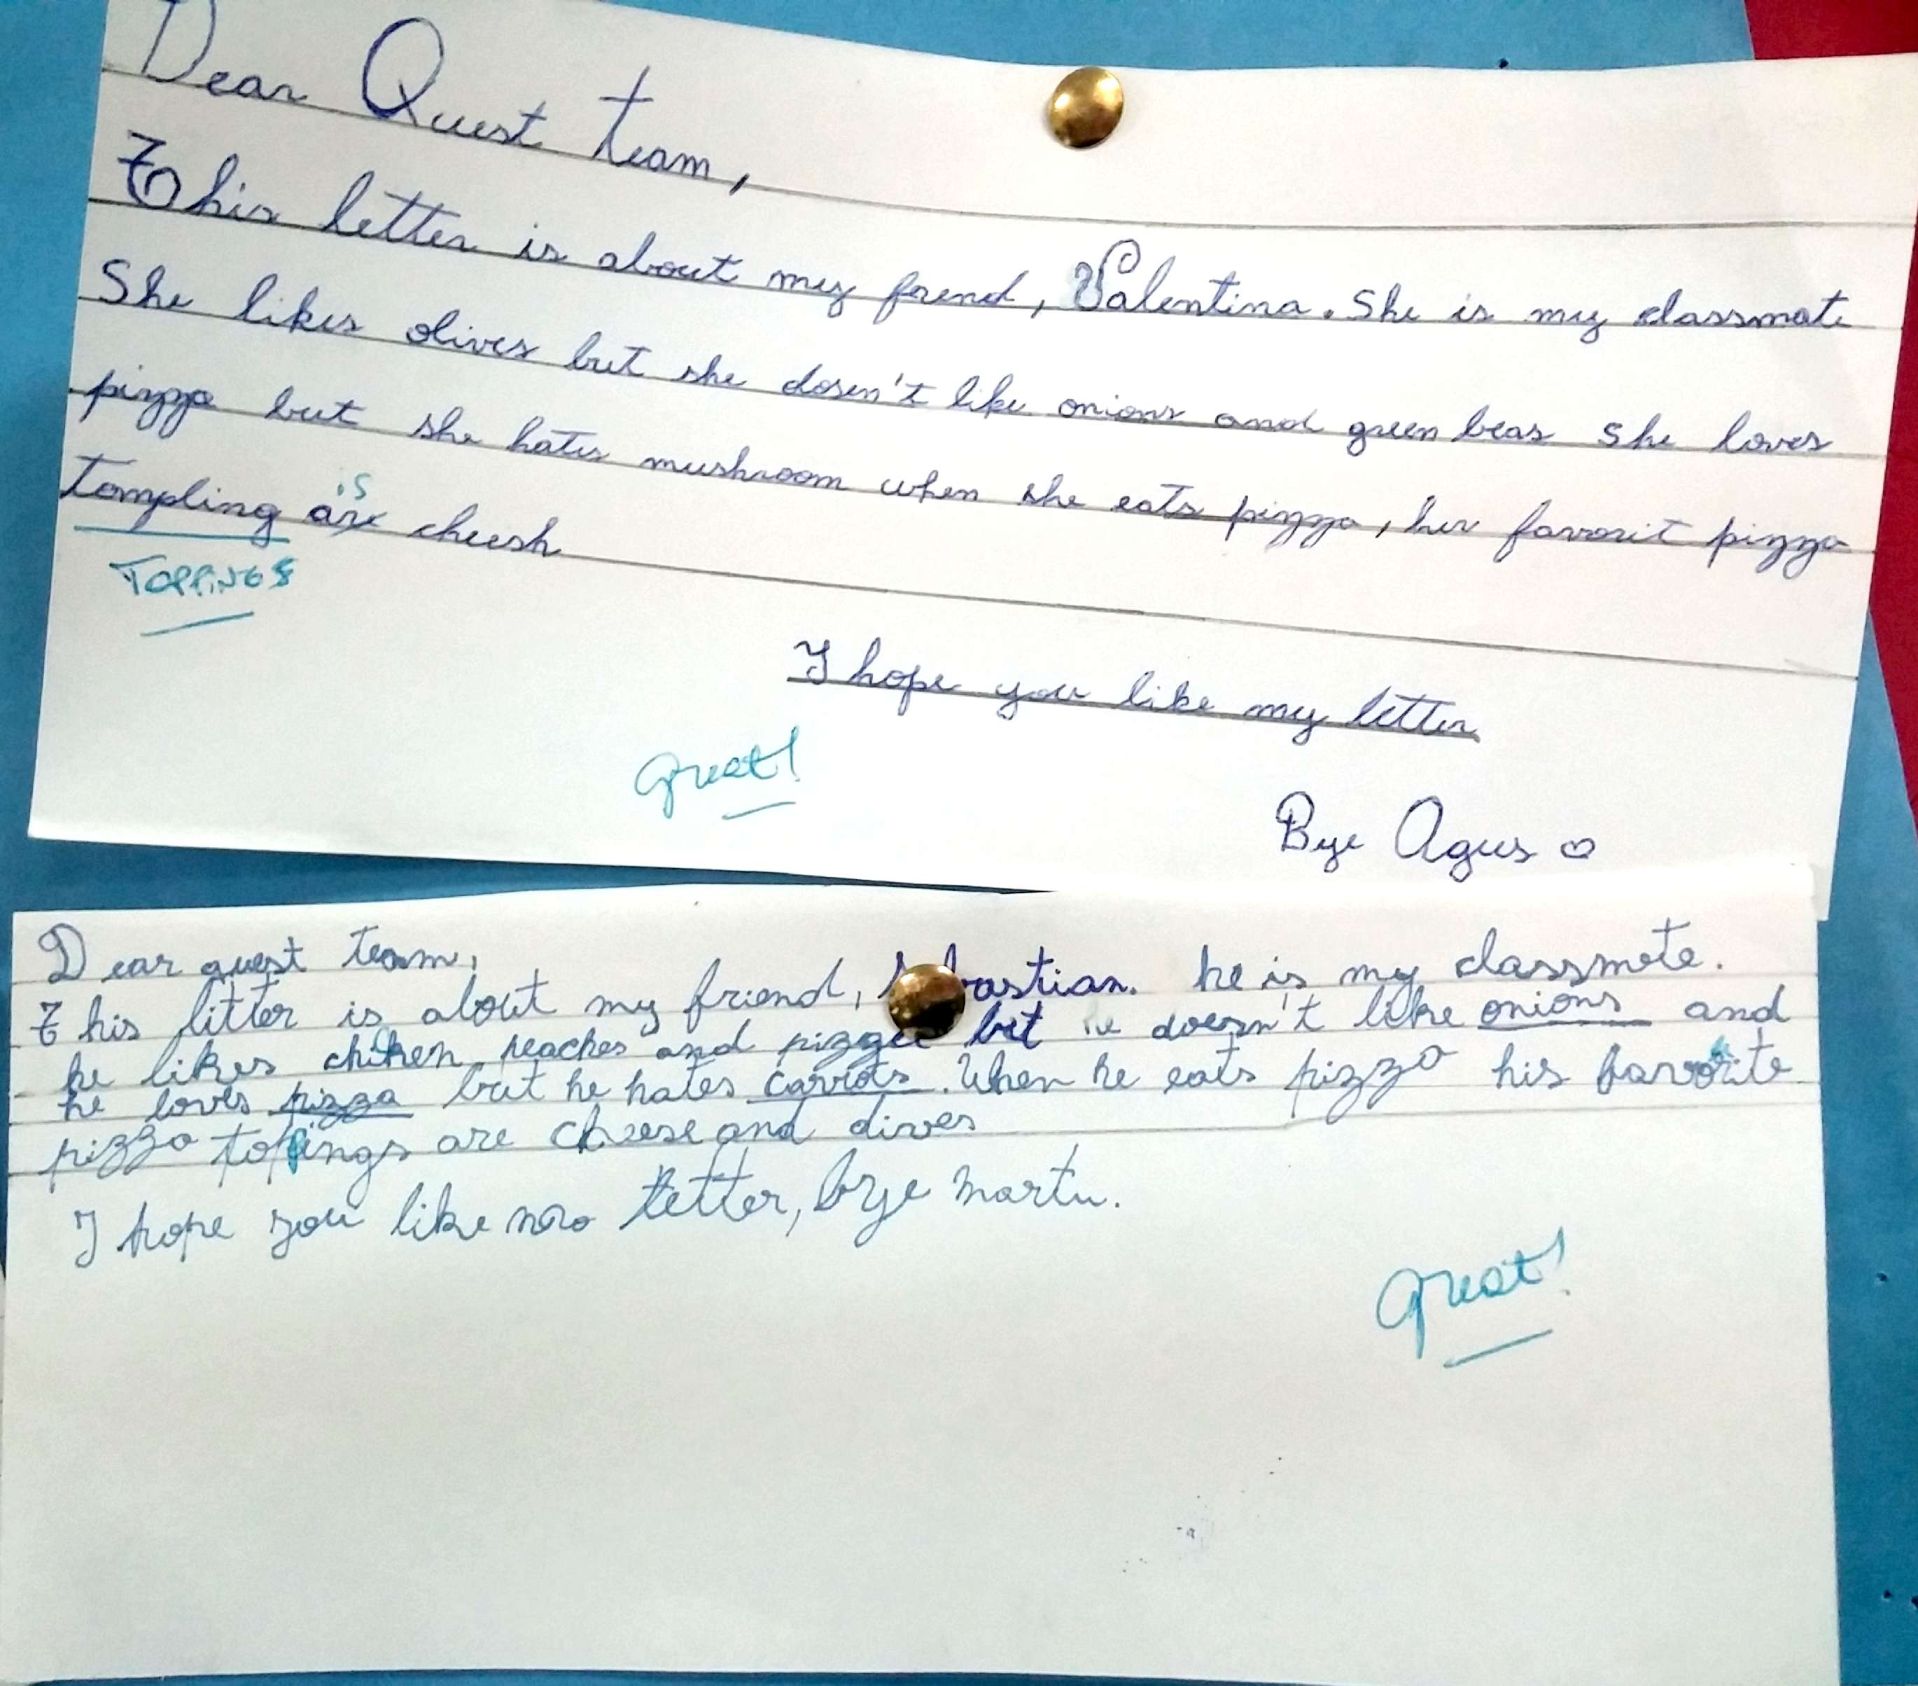 Dear Quest team,
This letter is about my frend, Valentina. She is my classmate
She likes olives but she dosen't like onions and green beas she loves
pizza but she hates mushroom when she eats pizza, her favorit pizza
tompling are is cheesh
TOPPINGS
I hope you like my letter
Great!
Bye Agus
Dear quest team,
This litter is about my friend, bastian. he is my classmate.
he likes chicken peaches and pizza but he doesn't like onions and
he loves pizza but he hates carrots. When he eats pizza his favorite
pizza toppings are cheese and olives
I hope you like letter, bye martu.
Great!